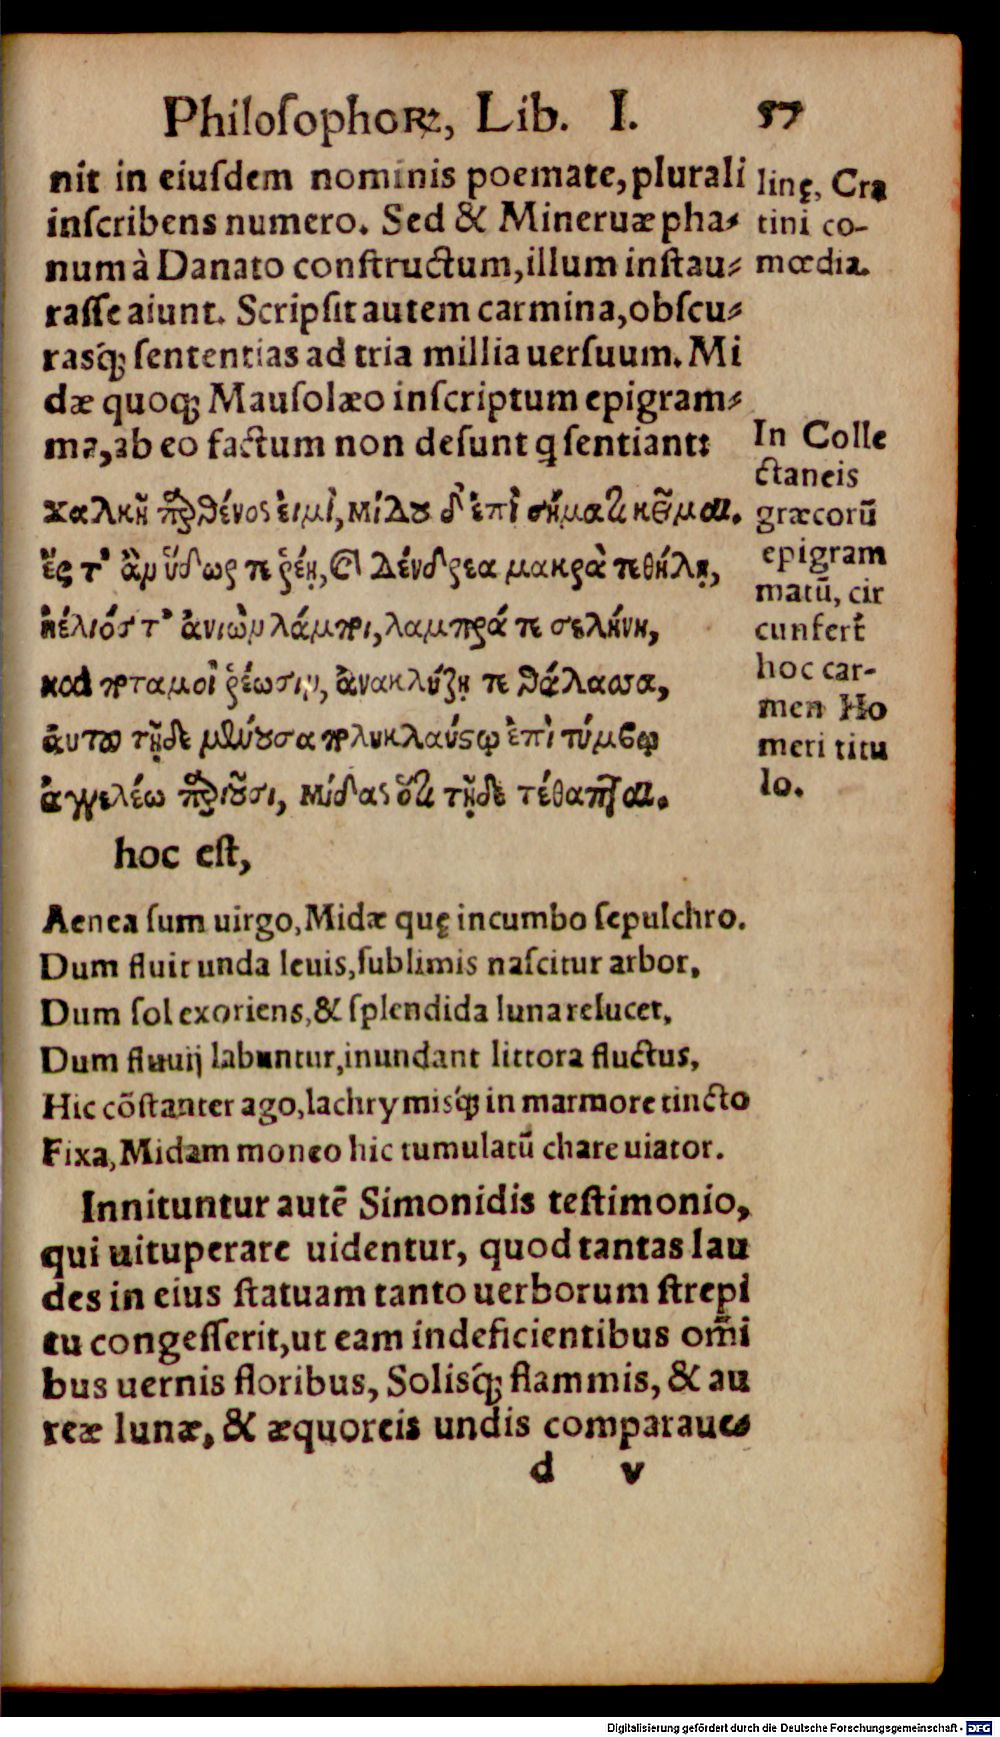 Philosophoꝝ, Lib. I. 57
nit in eiuſdem nominis poemate, plurali
inſcribens numero. Sed & Mineruæ pha⸗
num à Danato conſtructum, illum inſtau⸗
raſſe aiunt. Scripſit autem carmina, obſcu⸗
rasq́; ſententias ad tria millia uerſuum. Mi
dæ quoq; Mauſolæo inſcriptum epigram⸗
ma, ab eo factum non deſunt q ſentiant:
χαλκῆ παρθένος εἰμὶ, μίδου δ' ἐπὶ σήματι κεῖμαι.
ἔς τ' ἂν ὕδωρ τε ῥέῃ, καὶ δένδρεα μακρὰ τεθήλῃ,
ἠέλιός τ' ἀνιὼν λάμπῃ, λαμπρά τε σελήνη,
καὶ ποταμοὶ ῥέωσιν, ἀνακλύζῃ τε θάλασσα,
αὐτοῦ τῇδε μένουσα πολυκλαύτῳ ἐπὶ τύμβῳ
ἀγγελέω παριοῦσι, μίδας ὅτι τῇδε τέθαπται.
hoc eſt,
Aenea ſum uirgo, Midæ quę incumbo ſepulchro.
Dum fluit unda leuis, ſublimis naſcitur arbor,
Dum ſol exoriens, & ſplendida luna relucet,
Dum fluuij labuntur, inundant littora fluctus,
Hic cõſtanter ago, lachrymisq́; in marmore tincto
Fixa, Midam moneo hic tumulatũ chare uiator.
Innituntur autẽ Simonidis teſtimonio,
qui uituperare uidentur, quod tantas lau
des in eius ſtatuam tanto uerborum ſtrepi
tu congeſſerit, ut eam indeficientibus om̃i
bus uernis floribus, Solisq́; flammis, & au
reæ lunæ, & æquoreis undis comparaue⸗
d v
linę, Cra
tini co-
mœdia.
In Colle
ctaneis
græcorũ
epigram
matũ, cir
cunfert
hoc car-
men Ho
meri titu
lo.
Digitalisierung gefördert durch die Deutsche Forschungsgemeinschaft - DFG